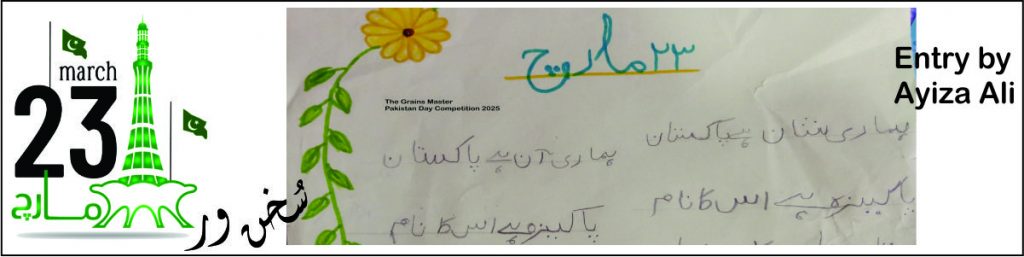 march
23
مارچ
سُخن ور
۲۳ مارچ
The Grains Master
Pakistan Day Competition 2025
ہماری شان ہے پاکستان
ہماری آن ہے پاکستان
پاکیزہ ہے اس کا نام
پاکیزہ ہے اس کا نام
Entry by
Ayiza Ali